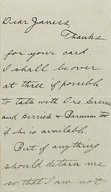 Dear James,
Thanks
for your card.
I shall be over
at three if possible
to talk with Drs. Greene
and Derrick &
if he is available.
But if anything
should detain me
so that I am not